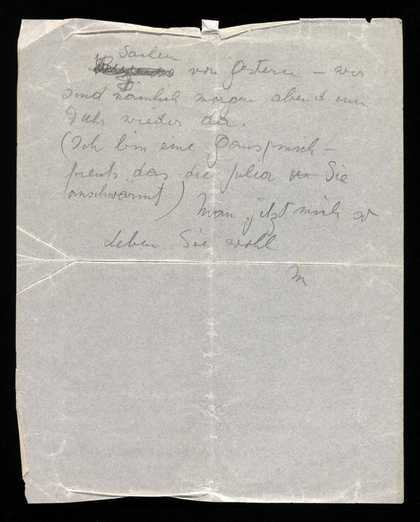 Sachen
von Gestern – wir
sind nämlich morgen abend um
Uhr wieder da.
(Ich bin eine
das die Julia Sie
anschwärmt) Man jetzt mich
Leben Sie wohl
M